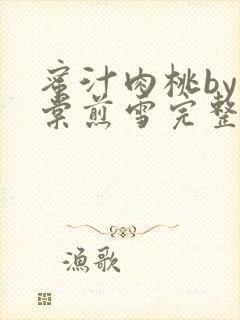 蜜汁肉桃by
棠煎雪完整
漁歌